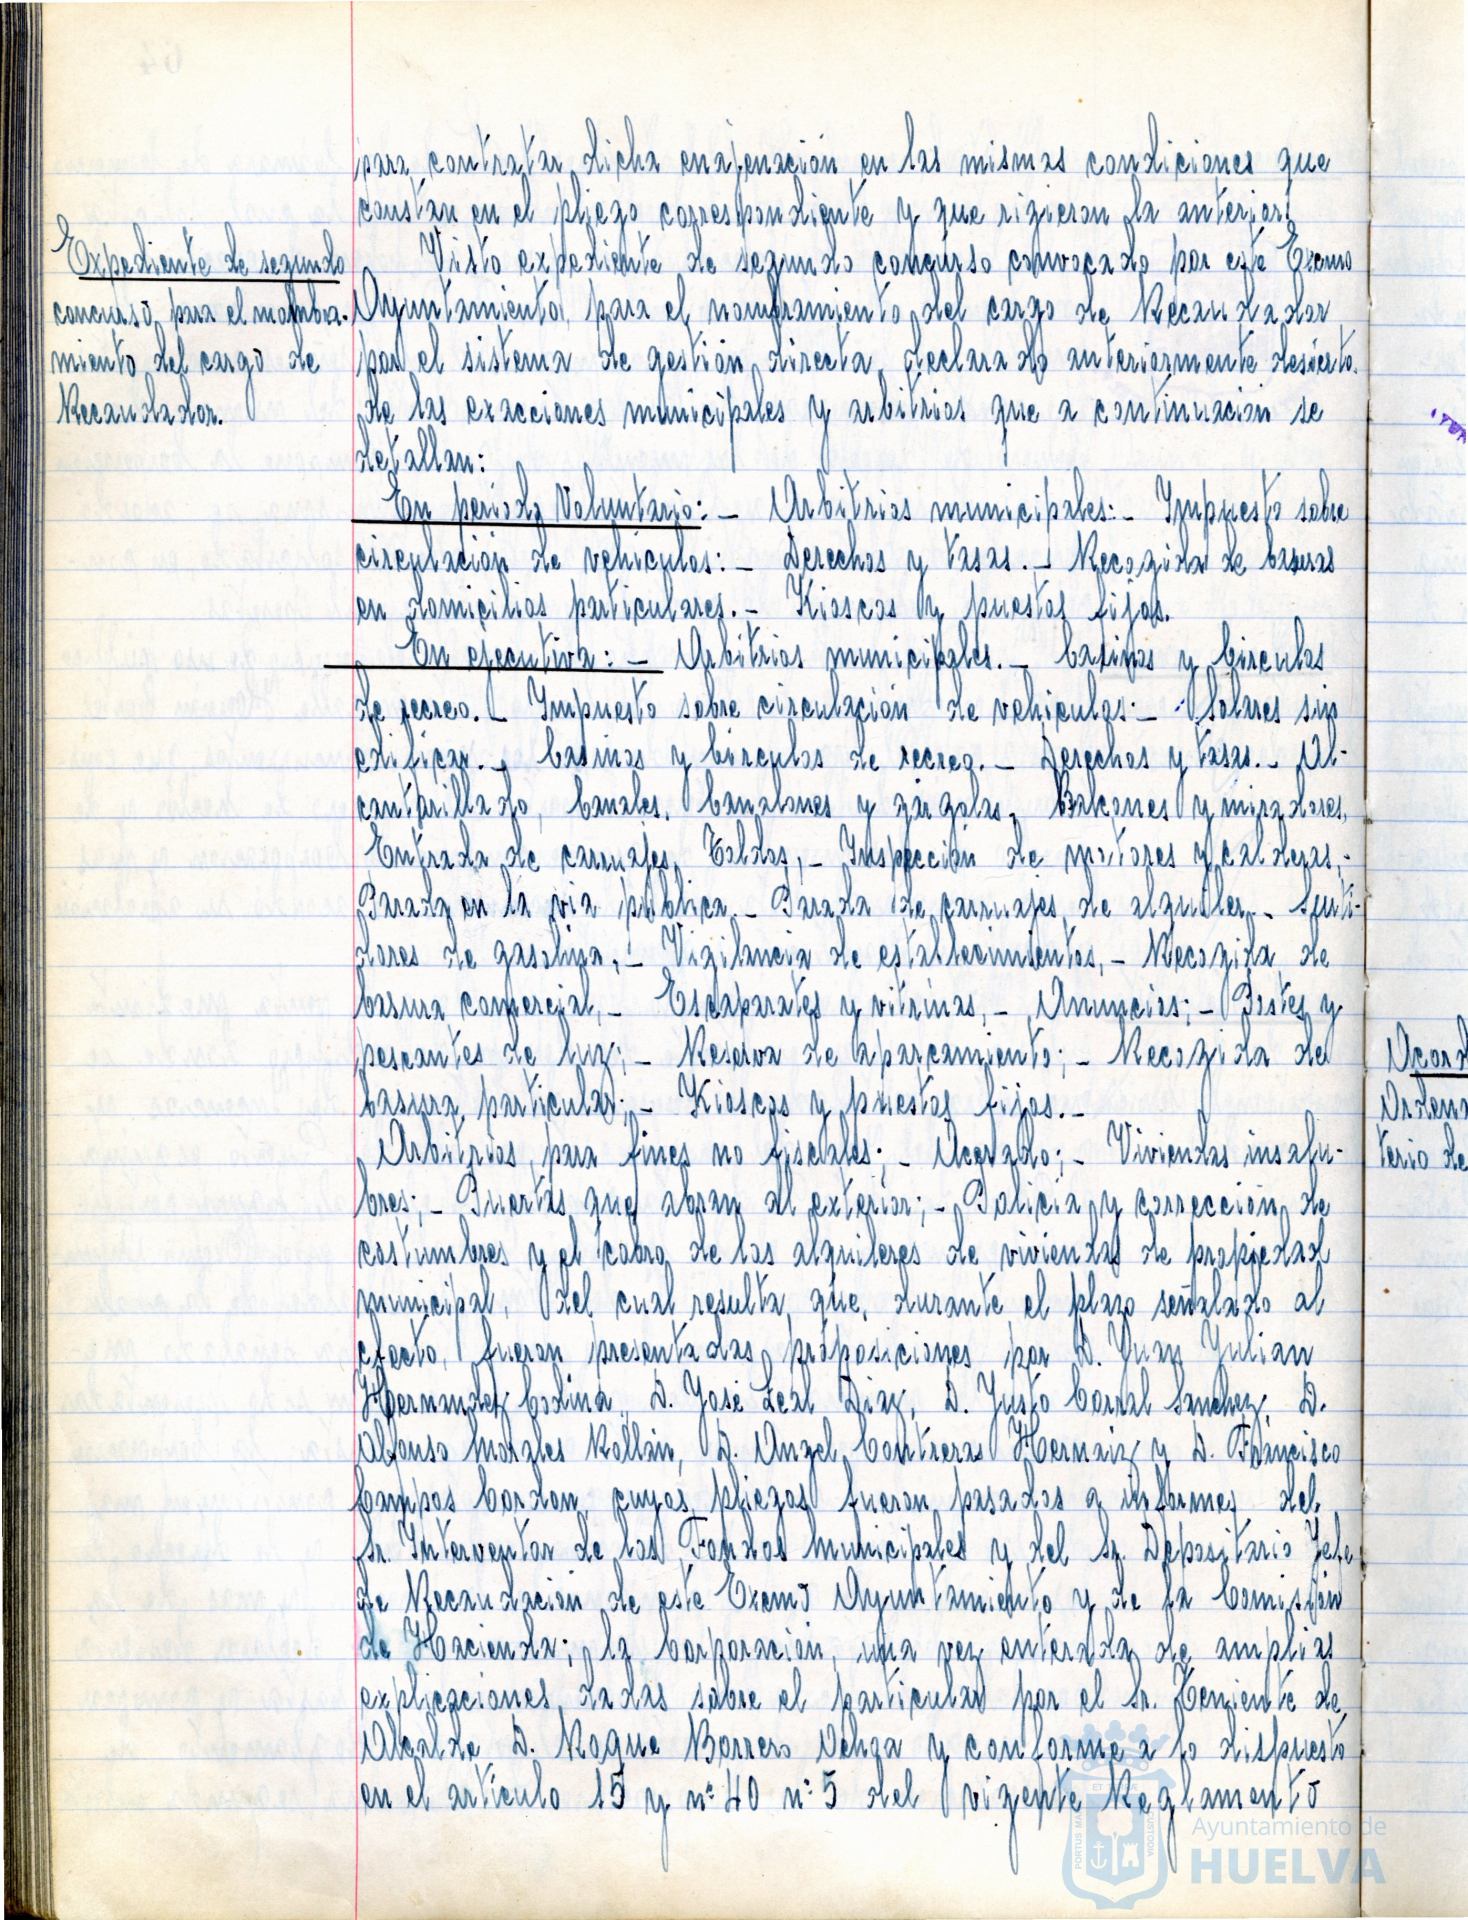 para contratar dicha enajenación en las mismas condiciones que
constan en el pliego correspondiente y que rigieron la anterior.
Expediente de segundo
concurso para el nombra-
miento del cargo de
Recaudador.
Visto expediente de segundo concurso convocado por este Excmo
Ayuntamiento, para el nombramiento del cargo de Recaudador
por el sistema de gestión directa, declarado anteriormente desierto.
de las exacciones municipales y arbitrios que a continuación se
detallan:
En periodo Voluntario: - Arbitrios municipales: - Impuesto sobre
circulación de vehiculos: - Derechos y tasas. - Recogida de basuras
en domicilios particulares. - Kioscos y puestos fijos.
En ejecutiva: - Arbitrios municipales. - Casinos y Circulos
de recreo. - Impuesto sobre circulación de vehiculos: - Solares sin
edificar. - Casinos y Circulos de recreo. - Derechos y tasas. - Al-
cantarillado, Canales, Canalones y gárgolas, Balcones y miradores,
Entrada de carruajes, Toldos, - Inspección de motores y calderas, -
Parada en la via pública - Parada de carruajes de alquiler - Surti-
dores de gasolina, - Vigilancia de establecimientos, - Recogida de
basura comercial, - Escaparates y vitrinas, - Anuncios; - Postes y
pescantes de luz; - Reserva de aparcamiento; - Recogida de
basura particular; - Kioscos y puestos fijos. -
Arbitrios para fines no fiscales; - Acerado; - Viviendas insalu-
bres; - Puertas que abran al exterior; - Policia y corrección de
costumbres y el cobro de los alquileres de viviendas de propiedad
municipal, del cual resulta que, durante el plazo señalado al
efecto, fueron presentadas proposiciones por D. Juan Julian
Hernandez Codina, D. José Leal Diaz, D. Justo Corral Sanchez, D.
Alfonso Morales Rollán, D. Angel Contreras Hernaiz y D. Francisco
Campos Cordon, cuyos pliegos fueron pasados a informes del
Sr. Interventor de los Fondos Municipales y del Sr. Depositario Jefe
de Recaudación de este Excmo Ayuntamiento y de la Comisión
de Hacienda; la Corporación, una vez enterada de amplias
explicaciones dadas sobre el particular por el Sr. Teniente de
Alcalde D. Roque Barrero Ochoa y conforme a lo dispuesto
en el artículo 15 y nº 40 nº 5 del vigente Reglamento
Acord
Ordena
terio de
PORTUS MA
ET TERRAE
CUSTODIA
Ayuntamiento de
HUELVA